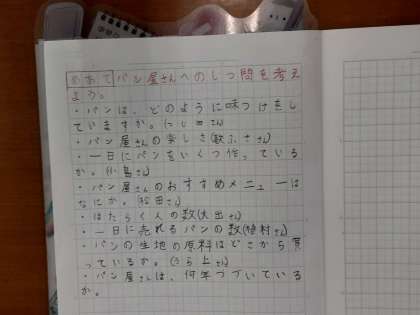 めあて パン屋さんへのしつ問を考え
よう。
・パンは、どのように味つけをし
ていますか。(つじ田さん)
・パン屋さんの楽しさ(さん)
・一日にパンをいくつ作っている
か。(小島さん)
・パン屋さんのおすすめメニューは
なにか。(松田さん)
・はたらく人の数(大出さん)
・一日に売れるパンの数(植村さん)
・パンの生地の原料はどこから買
っているか。(うら上さん)
・パン屋さんは、何年つづいている
か。